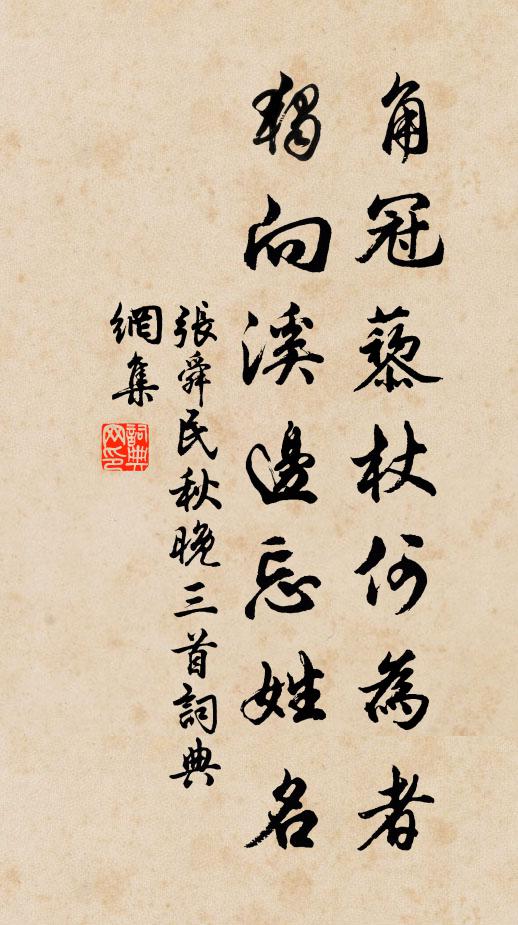 角冠藜杖何為者
獨向溪邊忘姓名
張舜民秋晚三首詞典
網集
詞典
網印